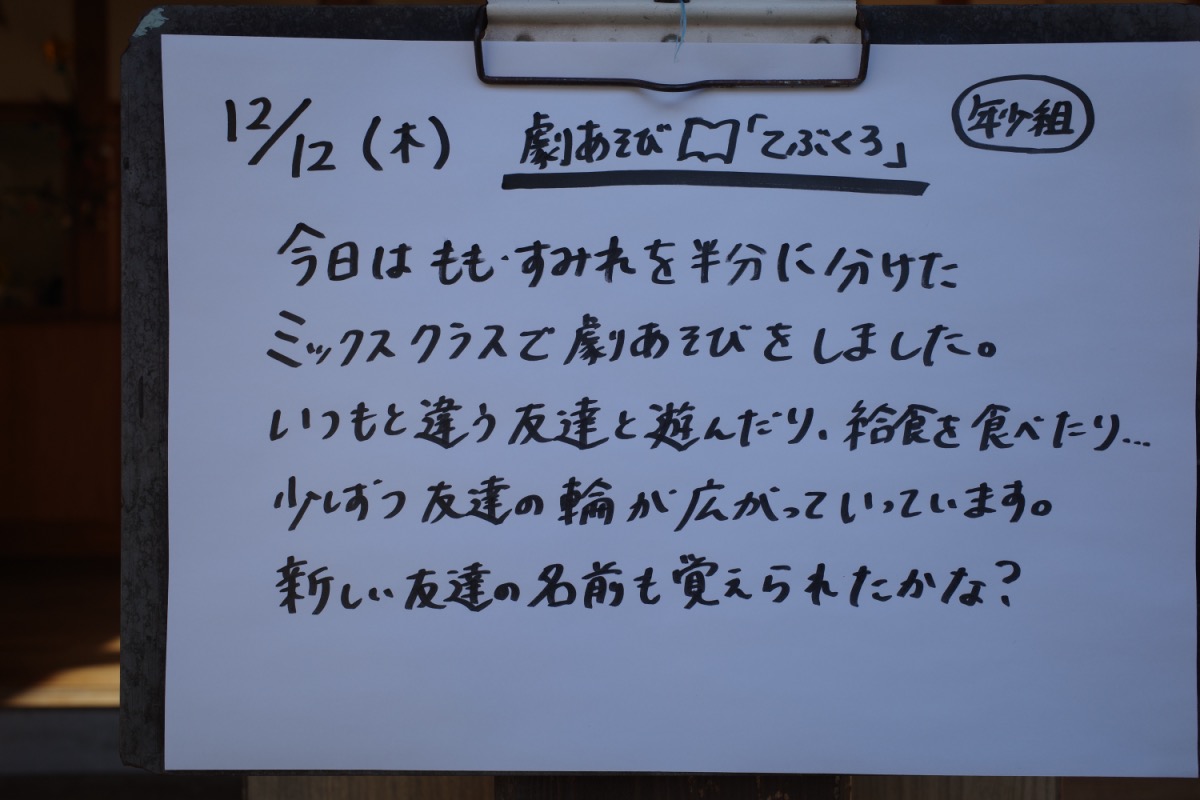 12/12(木) 劇あそび「てぶくろ」 年少組
今日は もも・すみれを半分に分けた
ミックスクラスで劇あそびをしました。
いつもと違う友達と遊んだり、給食を食べたり...
少しずつ友達の輪が広がっていっています。
新しい友達の名前も覚えられたかな?